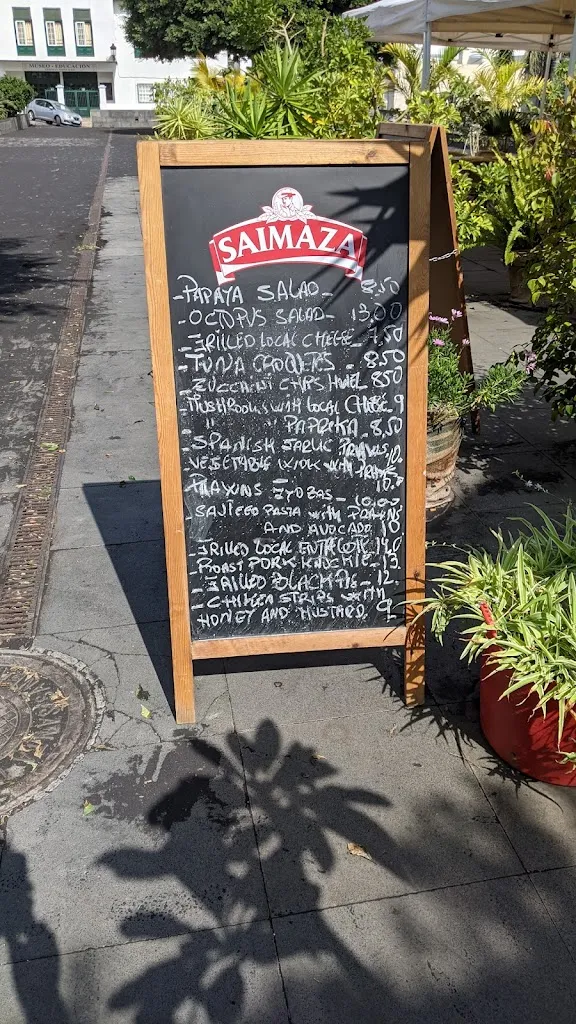 MUSEO - EDUCACIÓN
SAIMAZA
- PAPAYA SALAD - 8,50
- OCTOPUS SALAD - 13,00
- GRILLED LOCAL CHEESE - 7,50
- TUNA CROQUETS - 8,50
- ZUCCHINI CHIPS 850
- MUSHROOMS WITH LOCAL CHEESE 9
" " PAPRIKA - 8,50
- SPANISH GARLIC PRAWNS 10.
VEGETABLE WOK WITH PRAWNS
- PRAWNS GYOZAS - 10,00
- SALTEED PASTA WITH PRAWNS
AND AVOCADO 10
- GRILLED LOCAL ENTRECOTE 14,0
- ROAST PORK KNUCKLE - 13.
- GRILLED BLACK PIG - 12.
- CHIKEN STRIPS WITH
HONEY AND MUSTARD. 9